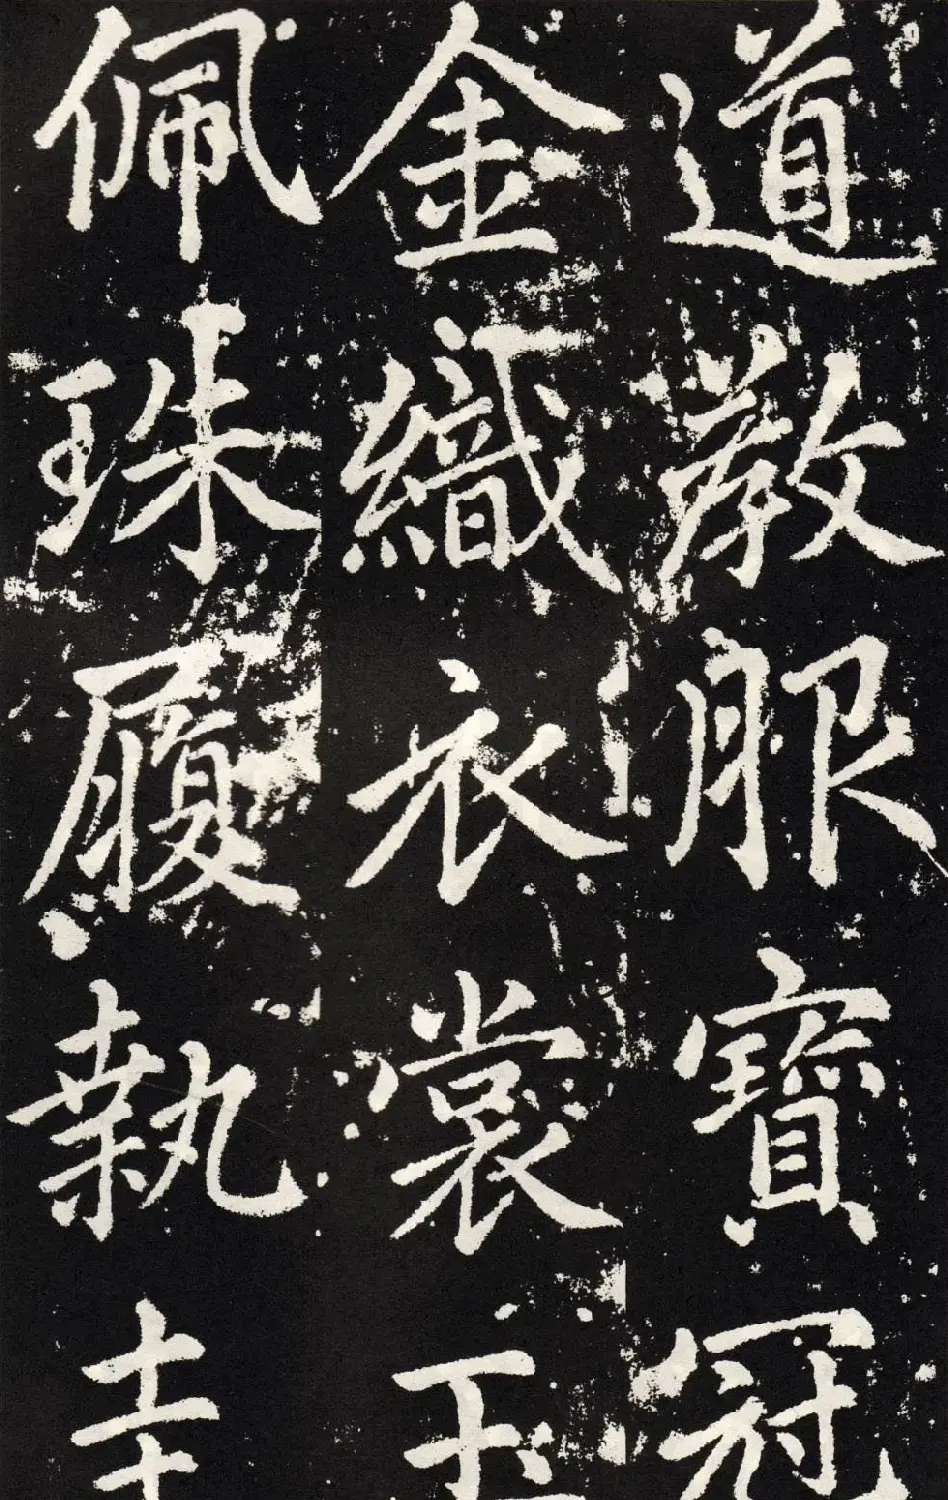 道教服寶冠
金織衣裳玉
佩珠履執圭